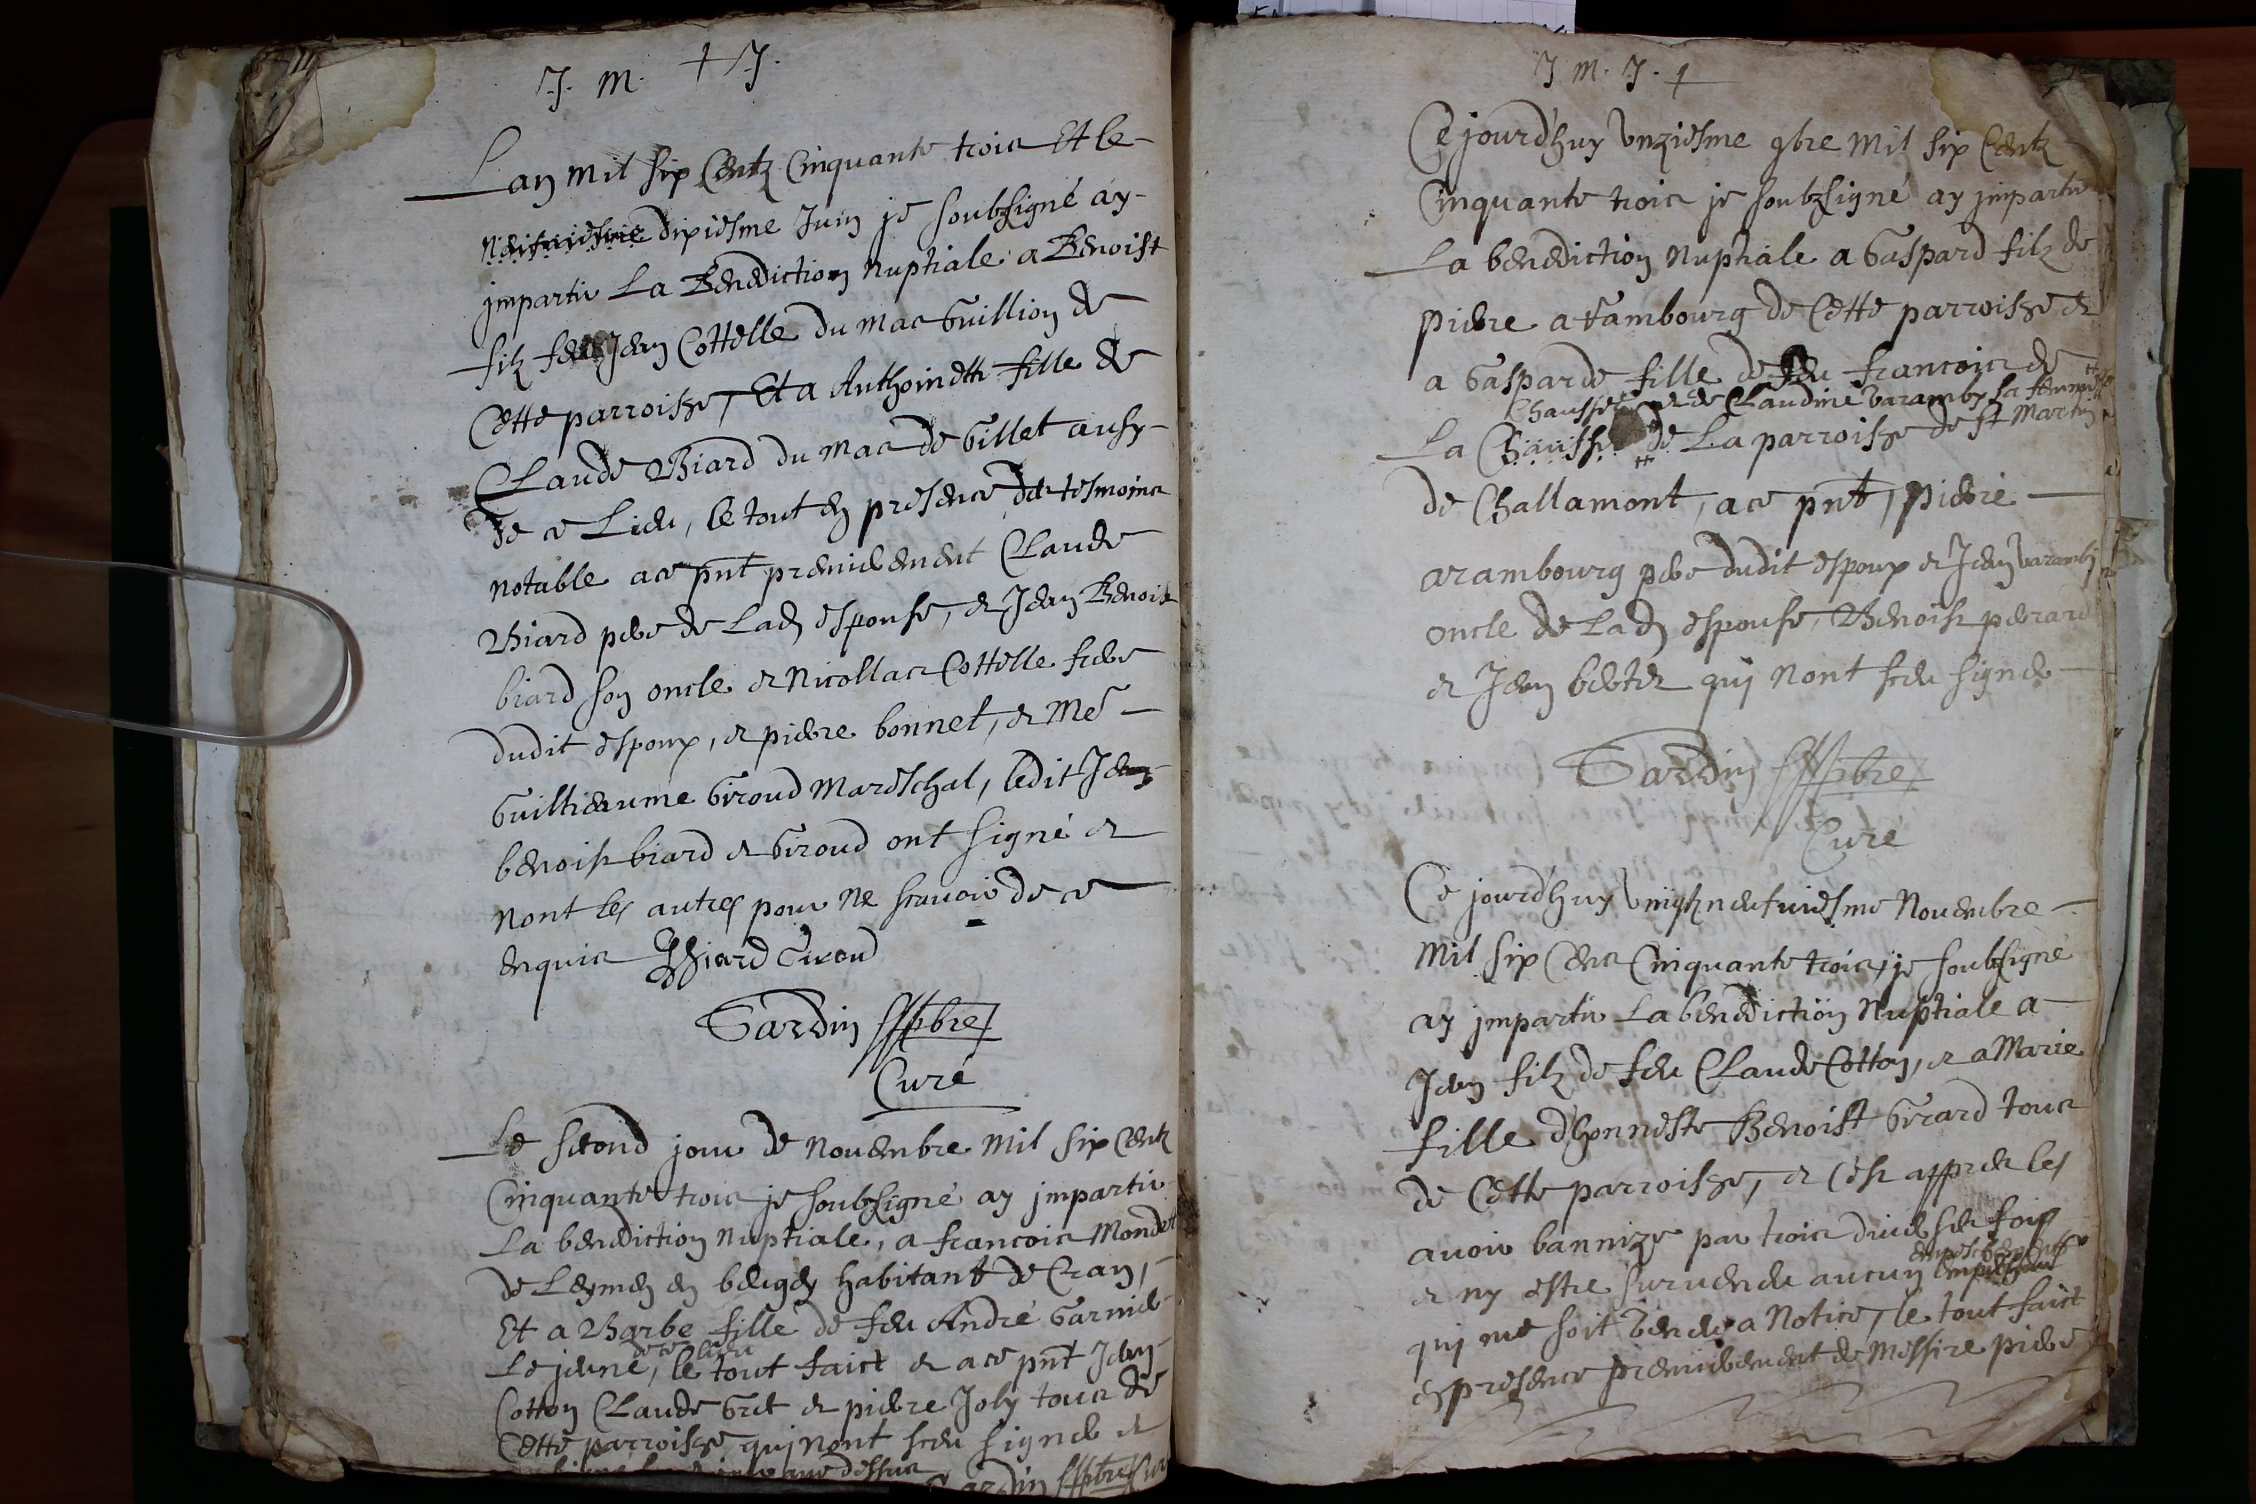 J. M. + J.
Lan mil six Centz Cinquante trois Et le
neufuiesme dixiesme Juin je soubzsigné ay
jmpartir La Benediction Nuptiale a Benoist
filz feu Jean Cottelle du mas Guillion de
Cette parroisse, Et a Anthoinette fille de
Claude Biard du mas de Gillet ausy
de ce Lieu, le tout en presence des tesmoins
notable a ce pnt premierement Claude
Biard pere de Lad espouse, et Jean Benoist
biard son oncle et Nicollas Cottelle frere
dudit espoux, et pierre bonnet, et Me
Guillieaume Giroud Mareschal, ledit Jean
benoist biard et Giroud ont signé et
nont les autres pour ne scauoir de ce
enquis JBiard Giroud
Gardin pbre
Curé
Le second jour de Nouembre Mil six Centz
Cinquante trois je soubzsigné ay jmpartir
La benediction Nuptiale, a francois Mondet
de Leymen en beugey habitant de Cran,
Et a Barbe fille de feu André Garnier
de ce lieu
Le jeune, le tout faict et a ce pnt Jean
Cotton Claude Gret et pierre Joly tous de
Cette parroisse qui nont sceu signer et
aux dessus Gardin pbre Curé
J M. J. +
Ce jourd'huy Vnziesme 9bre Mil six Centz
Cinquante trois je soubzsigné ay jmpartir
La benediction Nuptiale a Gaspard filz de
pierre arambourg de Cette parroisse et
a Gasparde fille de feu francois de
Chaussee et de Claudine Varamby sa femme
La Chausse de La parroisse de St Martin
de Challamont, a ce pnt, pierre
arambourg pere dudit espoux et Jean Varamby
oncle de Lad espouse, Benoist perard
et Jean bertet qui Nont sceu signer
Gardin pbre
Curé
Ce jourd'huy Vingtz neufuiesme Nouembre
Mil six Cens Cinquante trois, je soubzsigné
ay jmpartir La benediction Nuptiale a
Jean filz de feu Claude Cotton, et a Marie
fille d'honneste Benoist Girard tous
de Cette parroisse, et c'est appres les
auoir bannizé par trois diuerses fois
empeschement
et ny estre suruenu aucun
qui me soit venu a Notice, le tout faict
en presence premierement de Messire pierre